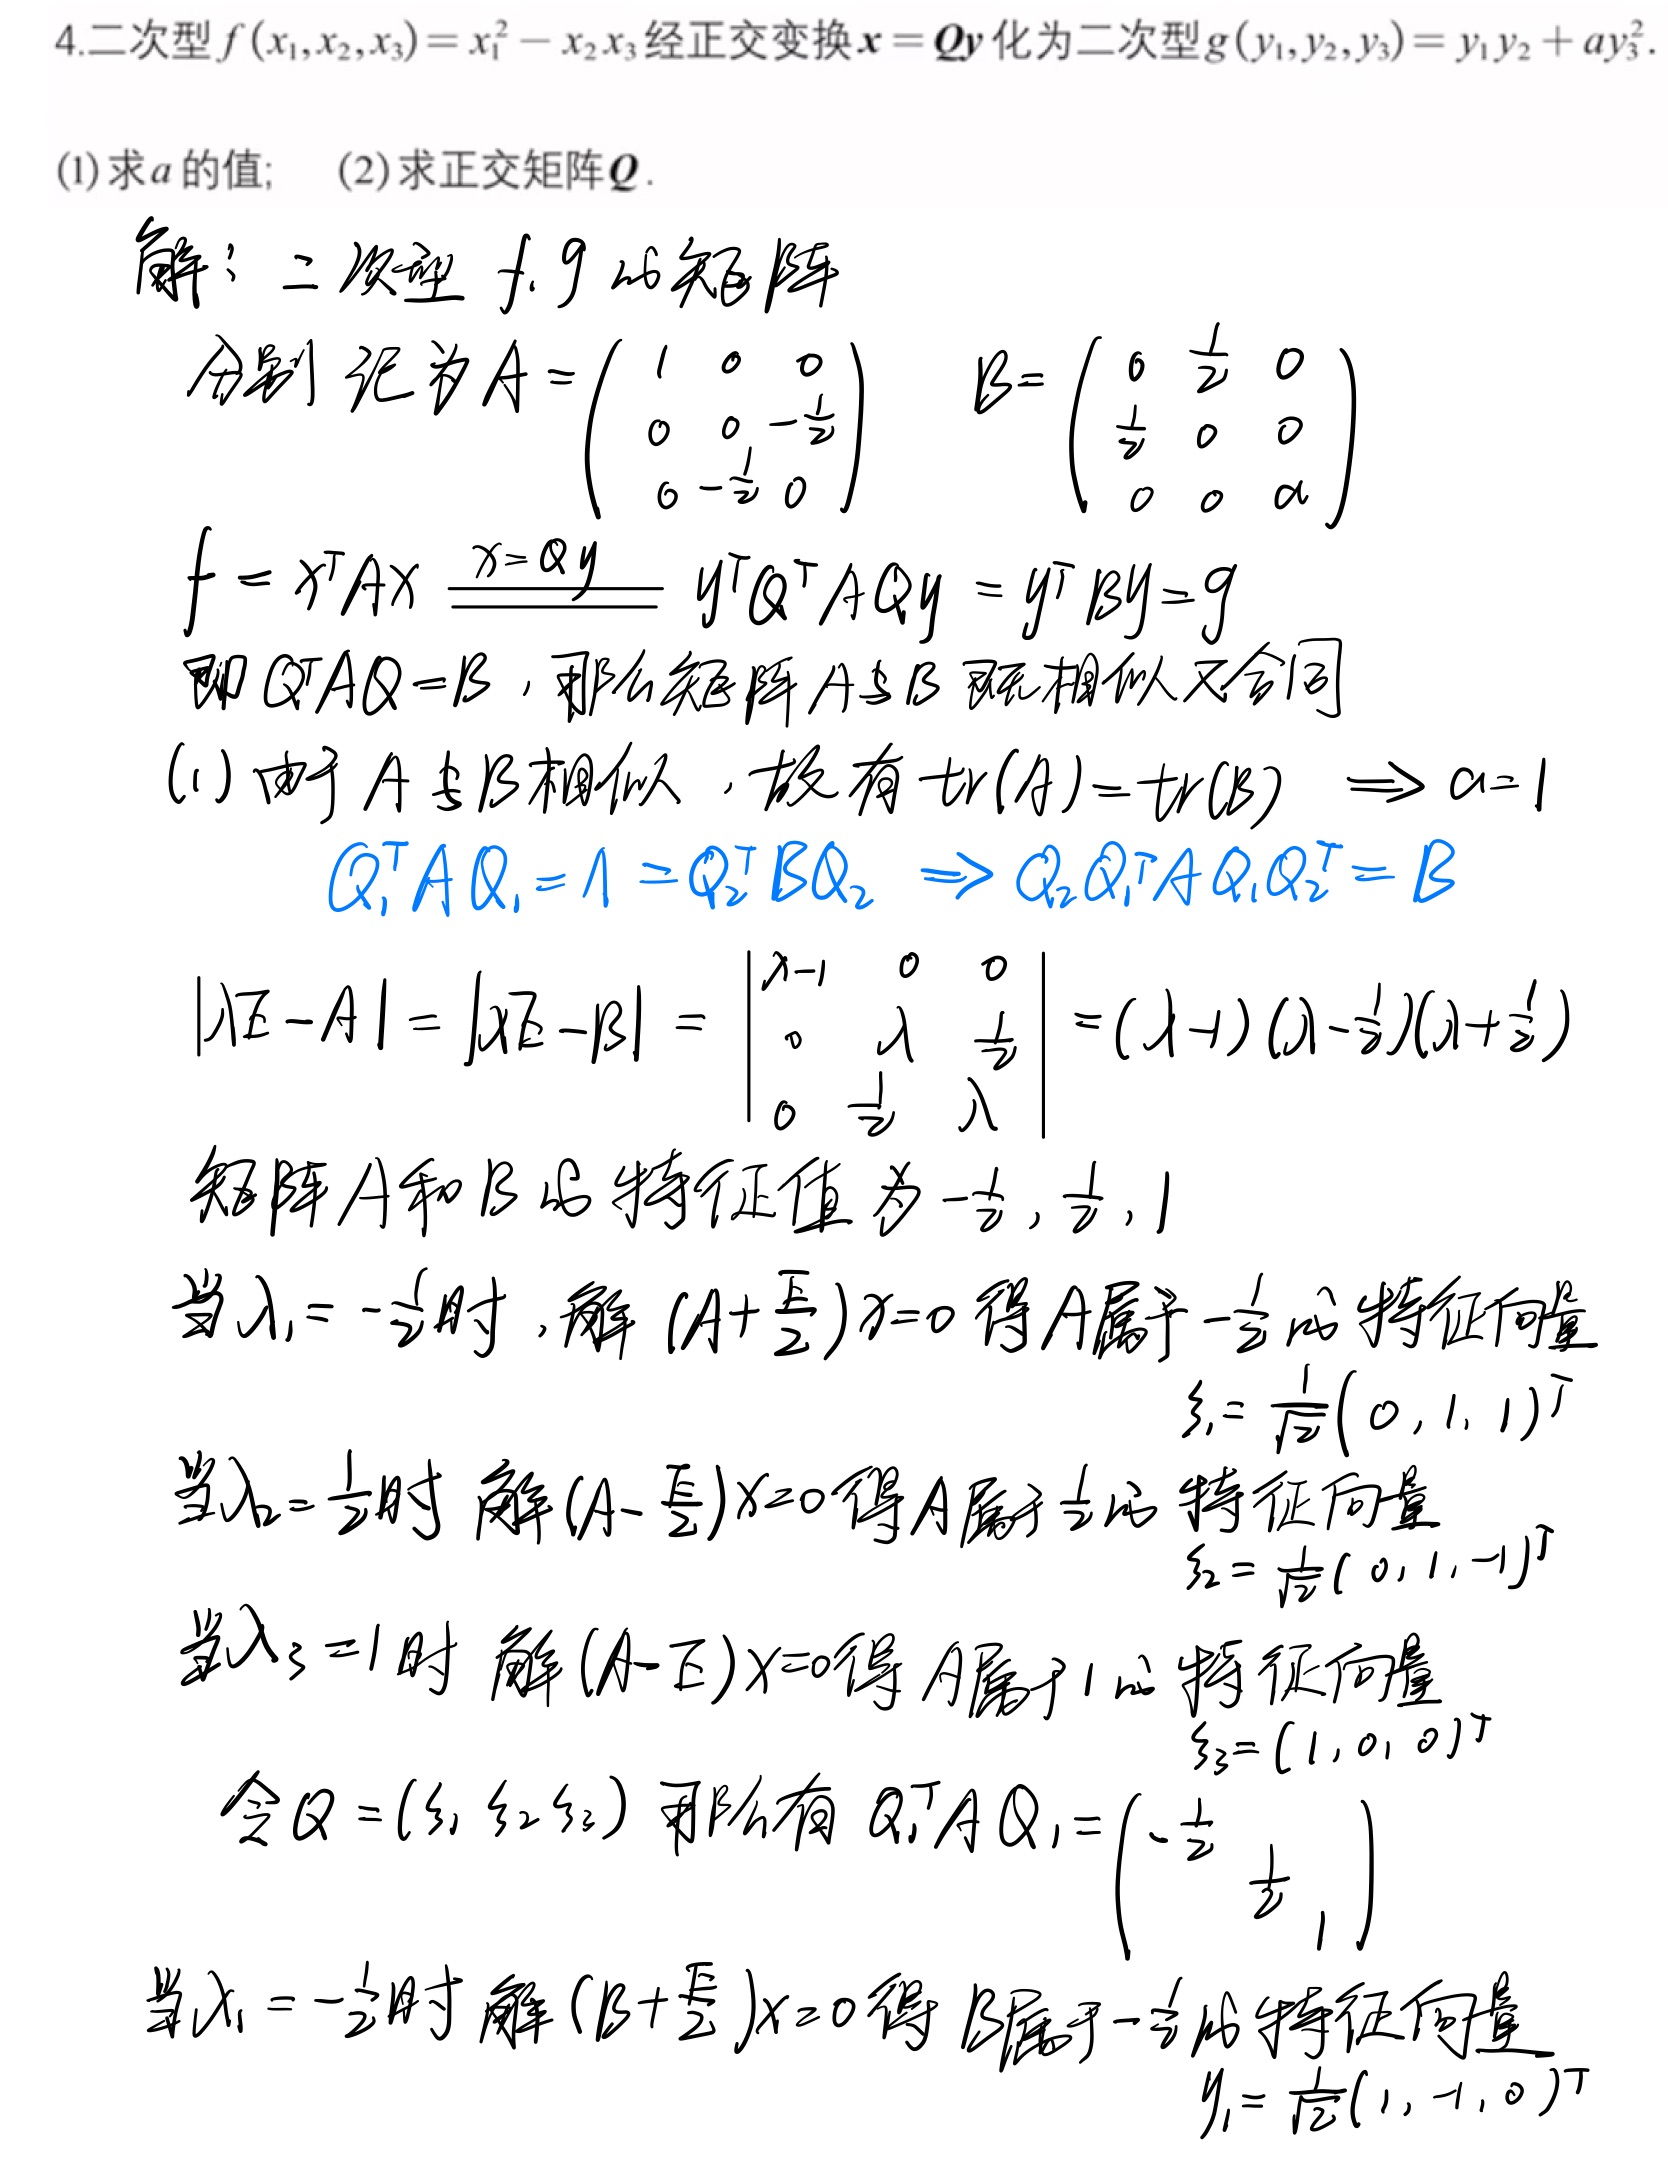 4.二次型 f(x₁,x₂,x₃)= x₁² − x₂x₃ 经正交变换 x = Qy 化为二次型 g(y₁,y₂,y₃)= y₁y₂ + ay₃².
(1) 求a 的值; (2) 求正交矩阵Q.
解: 二次型 f, g 的矩阵
分别记为 A = (1 0 0; 0 0 -1/2; 0 -1/2 0) B = (0 1/2 0; 1/2 0 0; 0 0 a)
f = xᵀAx ==(x=Qy)== yᵀQᵀAQy = yᵀBy = g
即 QᵀAQ = B, 那么矩阵 A与B 既相似又合同
(1) 由于 A与B相似, 故有 tr(A) = tr(B) ⇒ a = 1
Q₁ᵀAQ₁ = Λ = Q₂ᵀBQ₂ ⇒ Q₂Q₁ᵀAQ₁Q₂ᵀ = B
|λE-A| = |λE-B| = |λ-1 0 0; 0 λ 1/2; 0 1/2 λ| = (λ-1)(λ-1/2)(λ+1/2)
矩阵A和B的特征值为 -1/2, 1/2, 1
当λ₁ = -1/2时, 解 (A+E/2)x=0 得A属于 -1/2 的特征向量
ξ₁ = 1/√2 (0, 1, 1)ᵀ
当λ₂ = 1/2时 解(A-E/2)x=0得A属于1/2的特征向量
ξ₂ = 1/√2 (0, 1, -1)ᵀ
当λ₃ = 1时 解(A-E)x=0得 A属于1的特征向量
ξ₃ = (1, 0, 0)ᵀ
令Q = (ξ₁ ξ₂ ξ₃) 那么有 Q₁ᵀAQ₁ = (-1/2 1/2 1)
当λ₁ = -1/2时 解(B+E/2)x=0得 B属于-1/2的特征向量
y₁ = 1/√2 (1, -1, 0)ᵀ